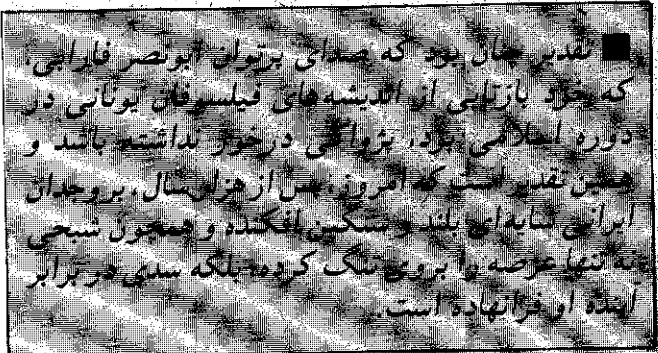 ■ تقدیر چنان بود که صدای پرتوان ابونصر فارابی،
که خود بازتابی از اندیشه‌های فیلسوفان یونانی در
دوره اسلامی بود، پژواکی درخور نداشته باشد و
همین تقدیر است که امروز، پس از هزار سال، بر وجدان
ایرانی سایه‌ای بلند و سنگین افکنده و همچون شبحی
نه تنها عرصه را بر وی تنگ کرده، بلکه سدی در برابر
آینده او فرانهاده است.